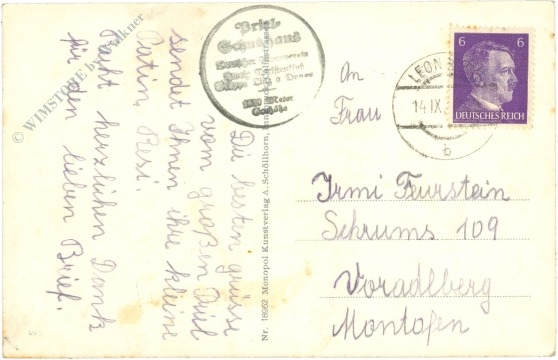 Die besten Grüsse
vom großen Priel
sendet Ihnen ihre kleine
Patin, Resi.
Recht herzlichen Dank
für den lieben Brief.
Priel-
Schutzhaus
1420 Meter
Seehöhe
Nr. 18662 Monopol Kunstverlag A. Schöllhorn,
LEON
14.IX.
b
6 6
DEUTSCHES REICH
An
Frau
Irmi Feurstein
Schruns 109
Voradlberg
Montafon
© WIMSTORE by Falkner